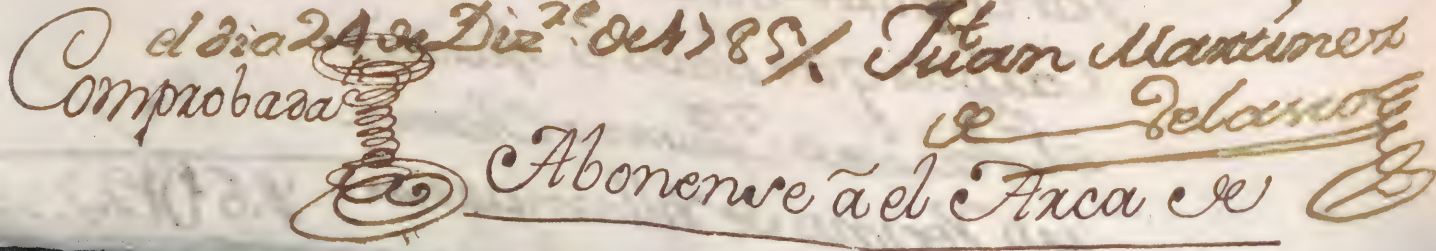 el dia 24 de Diz.re de 1785/. Juan Martinez
Comprobada
de Velasco
Abonense â el Arca de